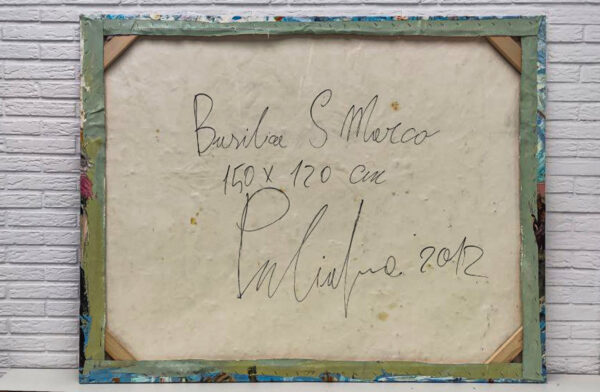 Basilica S Marco
150 x 120 cm
2012